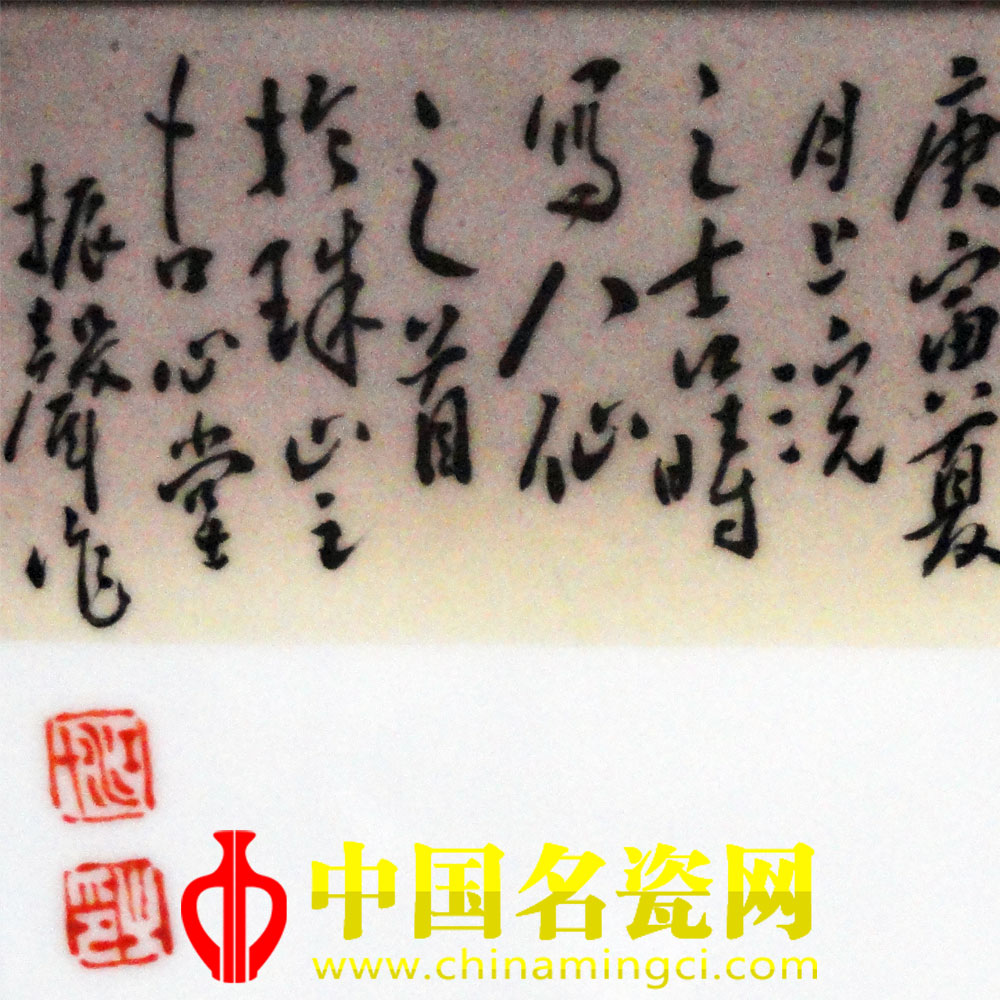 庚寅夏
月上浣
之吉時
寫八仙
之首
於珠山之
十口心堂
振聲作
中国名瓷网
www.chinamingci.com